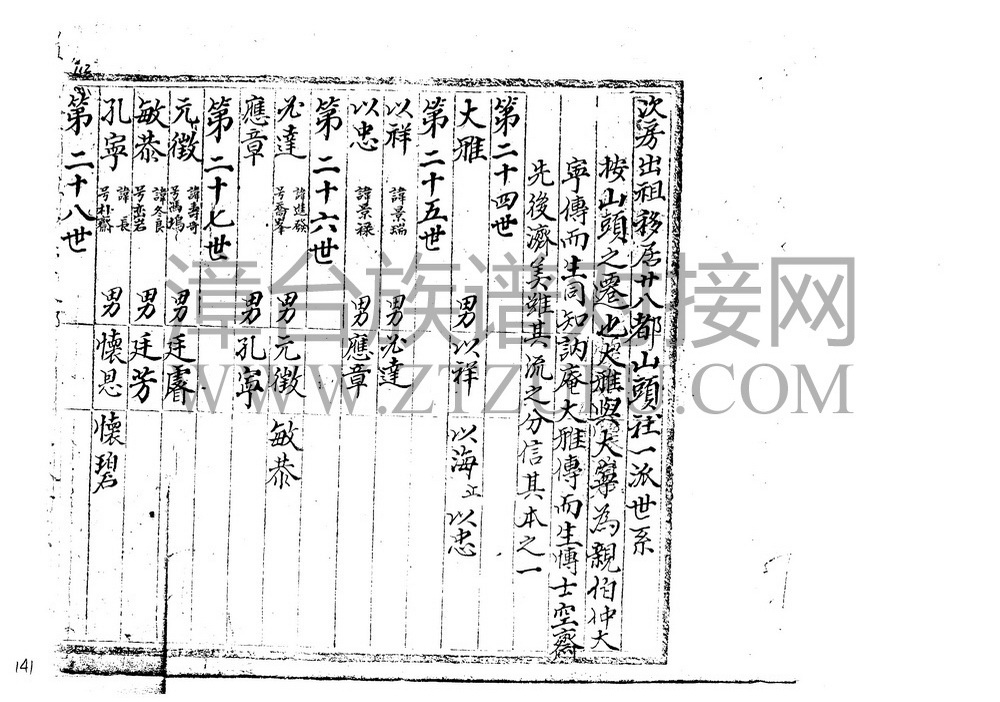 次房出祖移居廿八都山頭社一派世系
按山頭之遷也大雅與大寧為親伯仲大
寧傳而生同知訥庵大雅傳而生博士空齋
先後濟美雖其流之分信其本之一
第二十四世
大雅 男 以祥 以海 以忠
第二十五世
以祥 諱景瑞 男 必達
以忠 諱景祿 男 應章
第二十六世
必達 諱進發 号喬峯 男 元徵 敏恭
應章 男 孔寧
第二十七世
元徵 諱壽奇 男 廷睿
敏恭 諱冬良 号恋岩 男 廷芳
孔寧 諱長 号朴齋 男 懷恩 懷碧
第二十八世
漳台族谱对接网
WWW.ZTZUPU.COM
112
141